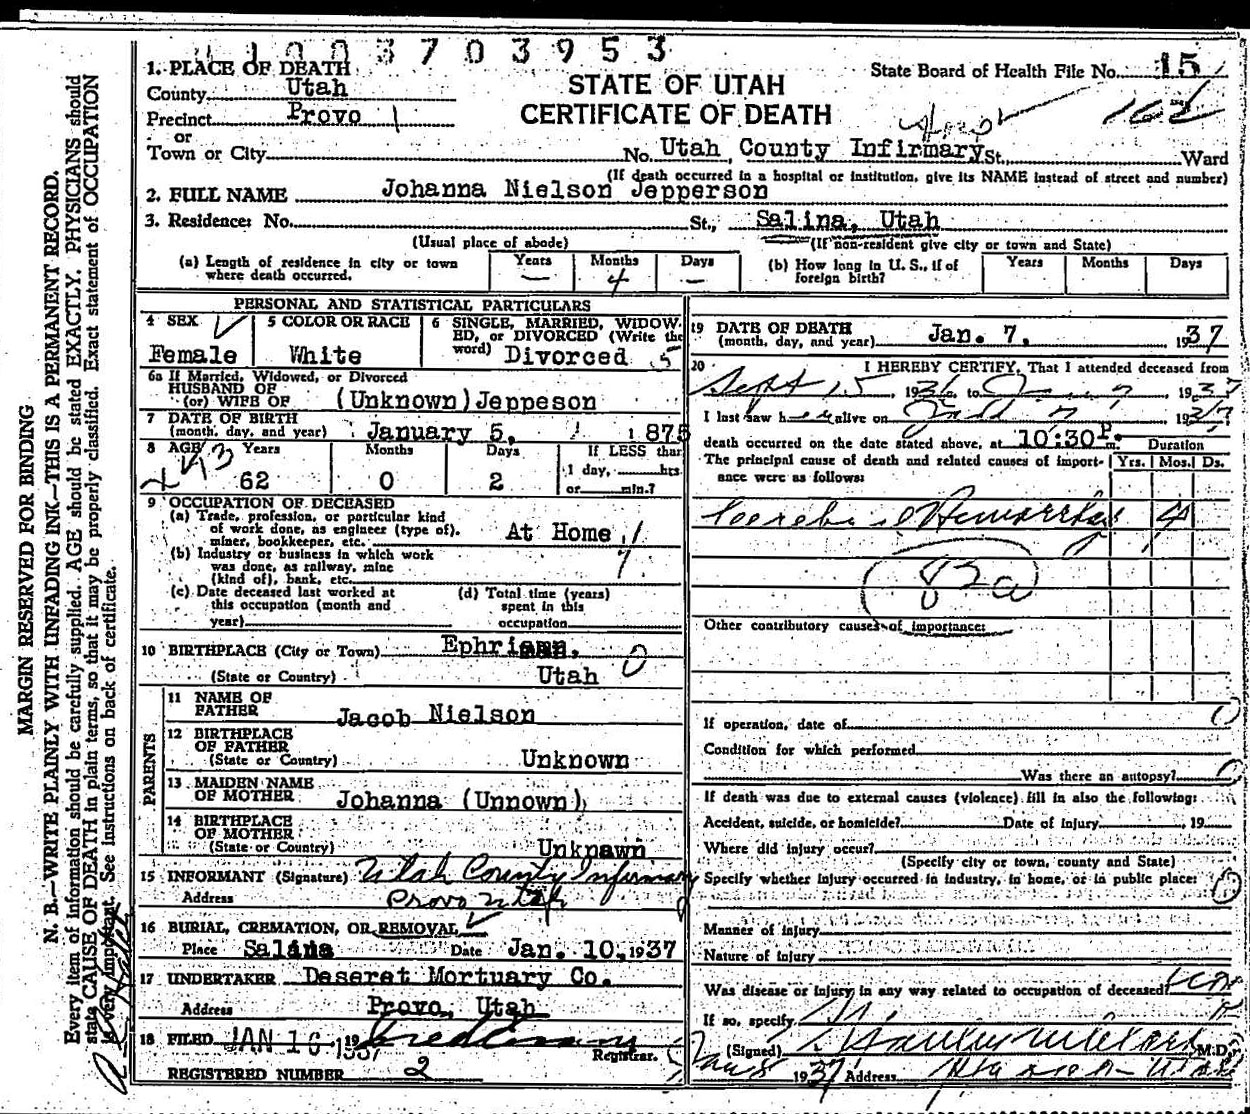 1003703953
1. PLACE OF DEATH
STATE OF UTAH
CERTIFICATE OF DEATH
State Board of Health File No. 15
162
County Utah
Precinct Provo 1
or
Town or City No. Utah County Infirmary St. Ward
(If death occurred in a hospital or institution, give its NAME instead of street and number)
2. FULL NAME Johanna Nielson Jepperson
3. Residence: No. St., Salina, Utah
(Usual place of abode) (If non-resident give city or town and State)
(a) Length of residence in city or town where death occurred. Years — Months 4 Days —
(b) How long in U. S., if of foreign birth? Years Months Days
PERSONAL AND STATISTICAL PARTICULARS
4 SEX Female
5 COLOR OR RACE White
6 SINGLE, MARRIED, WIDOWED, or DIVORCED (Write the word) Divorced 5
6a If Married, Widowed, or Divorced
HUSBAND OF
(or) WIFE OF (Unknown)Jeppeson
7 DATE OF BIRTH
(month, day, and year) January 5, 1875
8 AGE Years 62 Months 0 Days 2 If LESS than
1 day, hrs.
or min.?
9 OCCUPATION OF DECEASED
(a) Trade, profession, or particular kind
of work done, as engineer (type of),
miner, bookkeeper, etc. At Home
(b) Industry or business in which work
was done, as railway, mine
(kind of), bank, etc.
(c) Date deceased last worked at
this occupation (month and
year)
(d) Total time (years)
spent in this
occupation
10 BIRTHPLACE (City or Town)
(State or Country) Utah 0
PARENTS
11 NAME OF
FATHER Jacob Nielson
12 BIRTHPLACE
OF FATHER
(State or Country) Unknown
13 MAIDEN NAME
OF MOTHER Johanna (Unnown)
14 BIRTHPLACE
OF MOTHER
(State or Country) Unknawn
15 INFORMANT (Signature) Utah County Infirmary
Address Provo Utah
16 BURIAL, CREMATION, OR REMOVAL
Place Salina Date Jan. 10, 1937
17 UNDERTAKER Deseret Mortuary Co.
Address Provo, Utah
18 FILED JAN 16 1937
Registrar.
REGISTERED NUMBER 2
19 DATE OF DEATH
(month, day, and year) Jan. 7, 1937
20 I HEREBY CERTIFY, That I attended deceased from
Sept 15, 1936, to Jan 7, 1937
I last saw her alive on 7, 1937
death occurred on the date stated above, at 10:30 P. m.
Duration
The principal cause of death and related causes of importance were as follows: Yrs. Mos. Ds.
Cerebral Hemorrhage 4
82a
Other contributory causes of importance:
If operation, date of
Condition for which performed
Was there an autopsy?
If death was due to external causes (violence) fill in also the following:
Accident, suicide, or homicide? Date of injury , 19
Where did injury occur?
(Specify city or town, county and State)
Specify whether injury occurred in industry, in home, or in public place:
Manner of injury
Nature of injury
Was disease or injury in any way related to occupation of deceased?
If so, specify
(Signed) M.D.
Jan 8 1937 Address
MARGIN RESERVED FOR BINDING
N. B.—WRITE PLAINLY WITH UNFADING INK—THIS IS A PERMANENT RECORD.
Every item of information should be carefully supplied. AGE should be stated EXACTLY. PHYSICIANS should
state CAUSE OF DEATH in plain terms, so that it may be properly classified. Exact statement of OCCUPATION
is very important. See instructions on back of certificate.